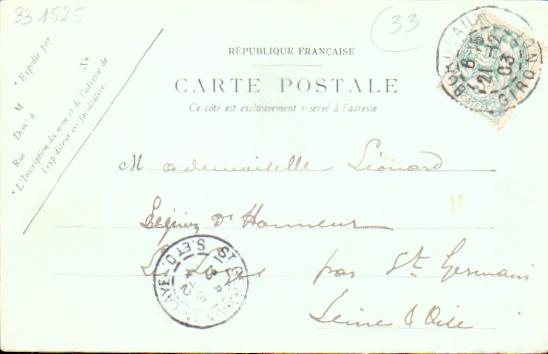 33 1525
33
RÉPUBLIQUE FRANÇAISE
CARTE POSTALE
Ce côté est exclusivement réservé à l'adresse
* Expédié par
M
No
Dem^t à
Rue
* L'Inscription du nom et de l'adresse de
l'expéditeur est facultative.
Mademoiselle Léonard
Légion d'Honneur
Les Loges par St Germain
Seine & Oise
BORDEAUX GIRONDE
21 -12
03
ST GERMAIN EN LAYE
S. ET O.